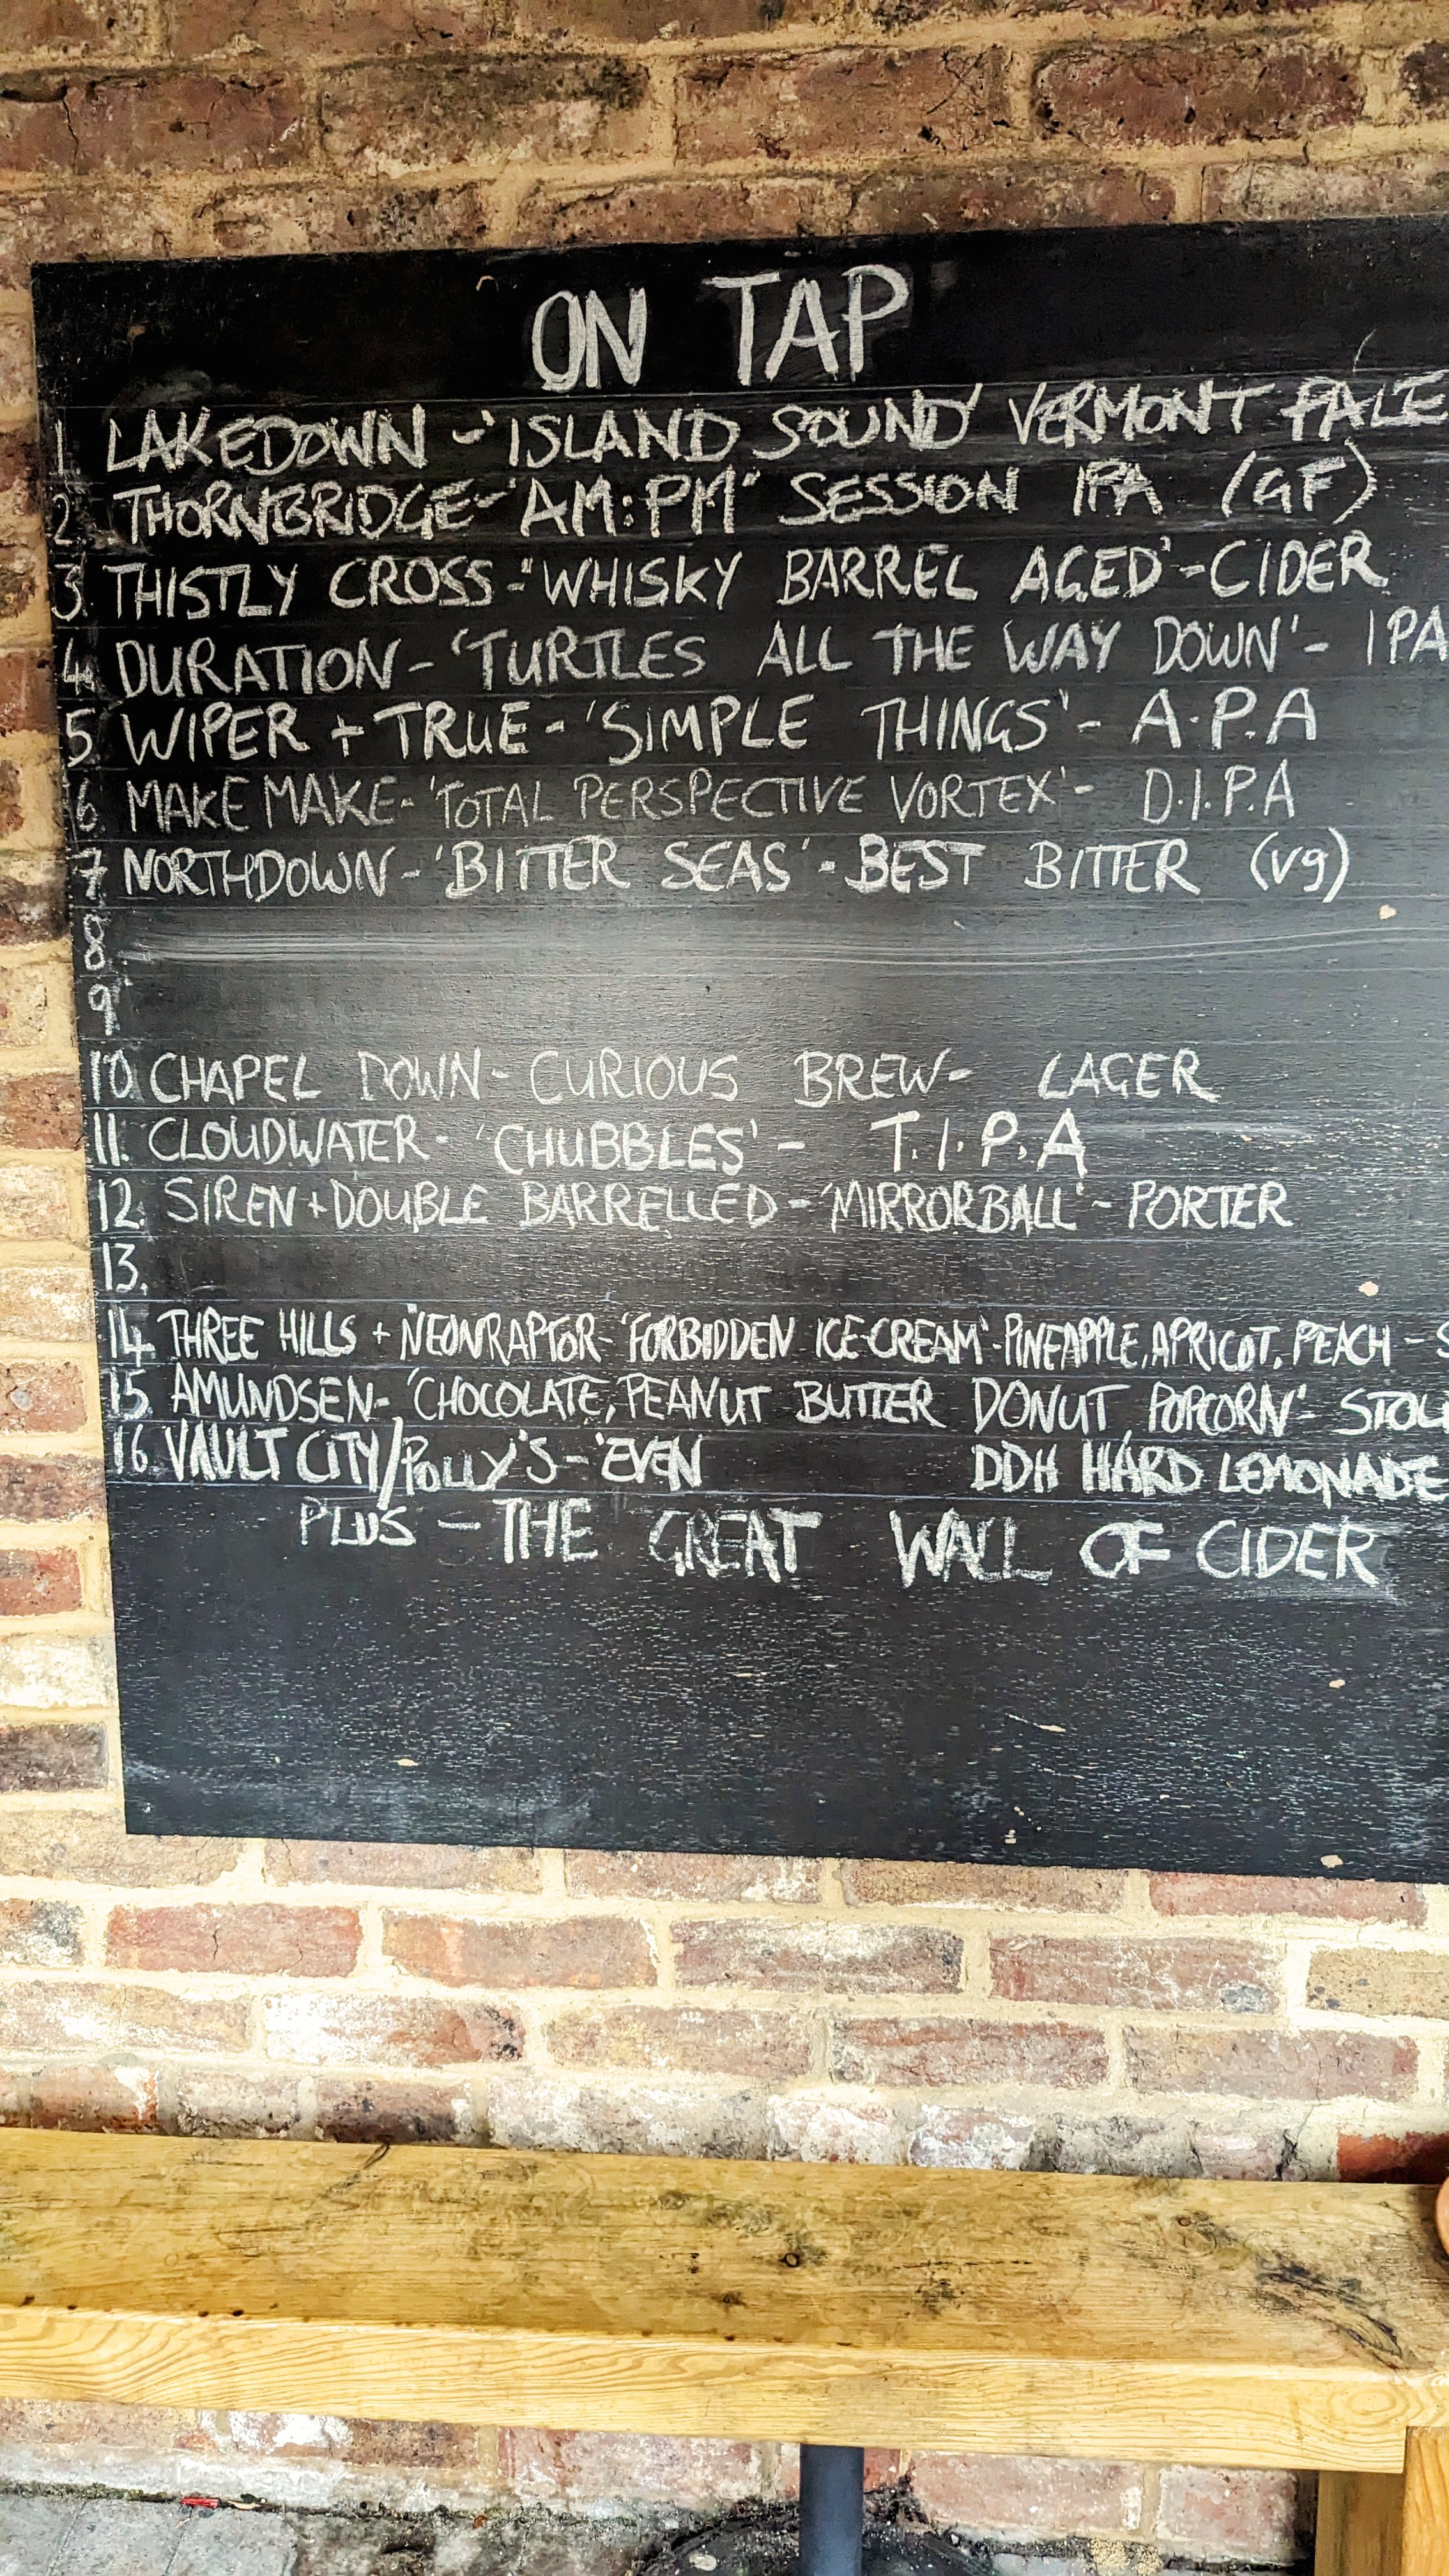 ON TAP
1 LAKEDOWN - 'ISLAND SOUND' VERMONT PALE
2. THORNBRIDGE - 'AM:PM" SESSION IPA (GF)
3. THISTLY CROSS - "WHISKY BARREL AGED' - CIDER
4. DURATION - 'TURTLES ALL THE WAY DOWN' - IPA
5 WIPER + TRUE - 'SIMPLE THINGS' - A.P.A
6. MAKEMAKE - 'TOTAL PERSPECTIVE VORTEX' - D.I.P.A
7 NORTHDOWN - 'BITTER SEAS' - BEST BITTER (vg)
8
9
10. CHAPEL DOWN - CURIOUS BREW - LAGER
11. CLOUDWATER - 'CHUBBLES' - T.I.P.A
12. SIREN + DOUBLE BARRELLED - 'MIRRORBALL' - PORTER
13.
14. THREE HILLS + NEONRAPTOR - 'FORBIDDEN ICE-CREAM' - PINEAPPLE, APRICOT, PEACH -
15. AMUNDSEN - 'CHOCOLATE, PEANUT BUTTER DONUT, POPCORN' -
16. VAULT CITY/POLLY'S - 'EVEN DDH HARD LEMONADE
PLUS - THE GREAT WALL OF CIDER